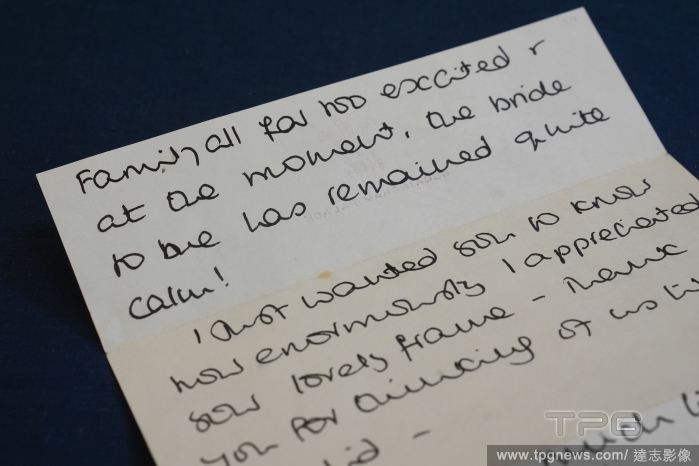 Family all far too excited +
at the moment, the bride
to be has remained quite
calm!
I just wanted you to know
how enormously I appreciated
your lovely frame - Thank
you for thinking of us
-
much
TPG
www.tpgnews.com/ 達志影像